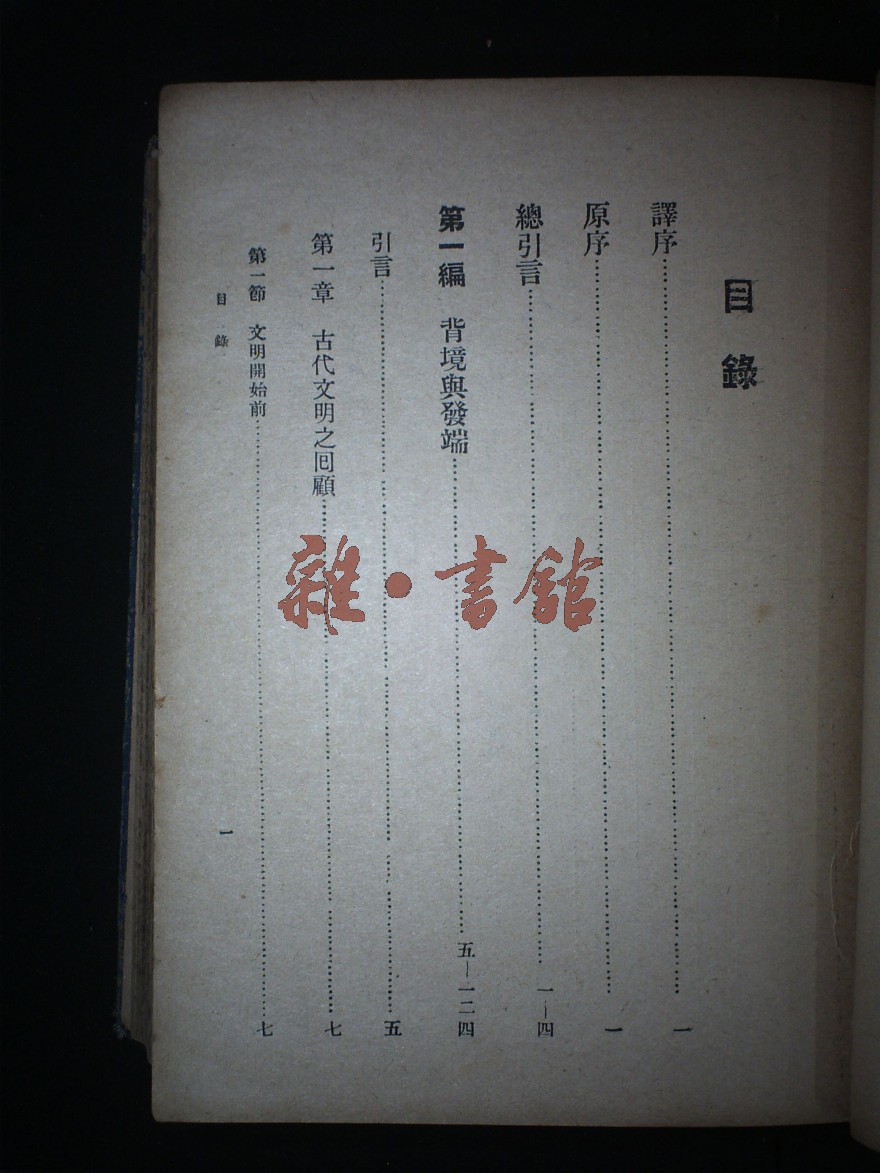 目錄
譯序……一
原序……一
總引言……一—四
第一編 背境與發端……五—一二四
引言……五
第一章 古代文明之囘顧……七
第一節 文明開始前……七
目錄 一
雜·書館